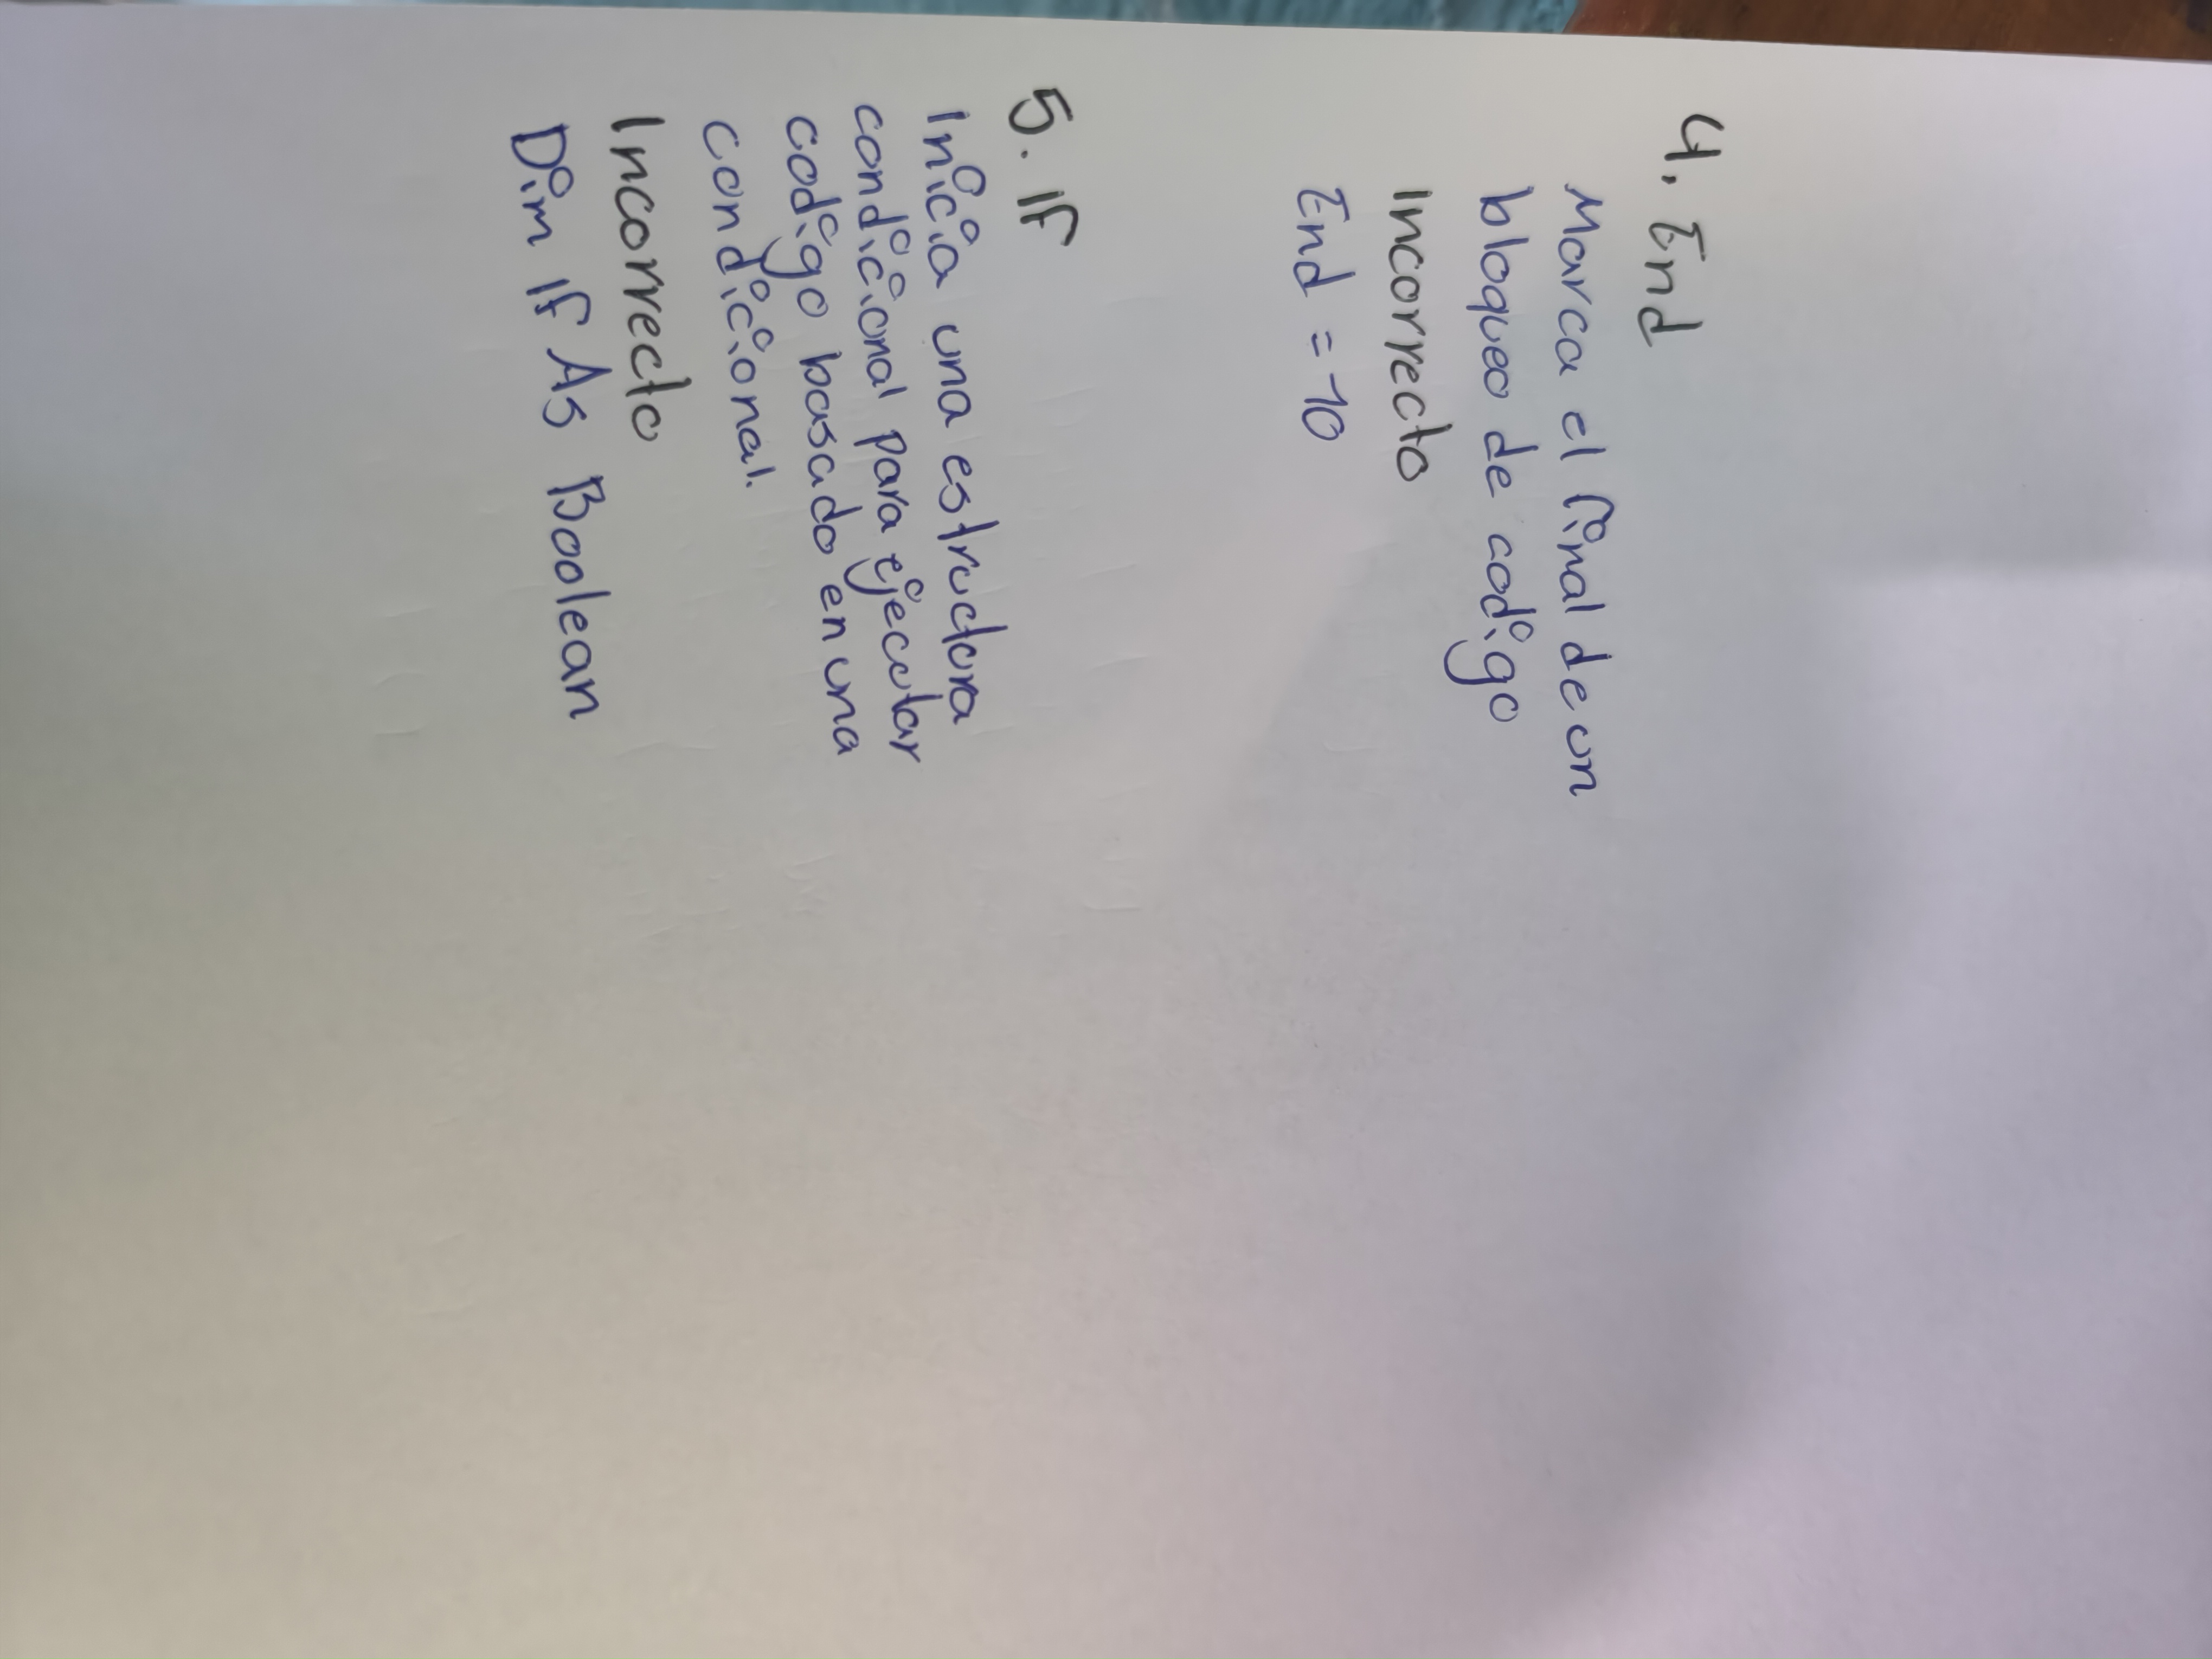 4. End
Marca el final de un
bloqueo de codigo
Incorrecto
End = 10
5. If
Inicia una estructura
condicional para ejecutar
codigo basado en una
condicional.
Incorrecto
Dim If As Boolean